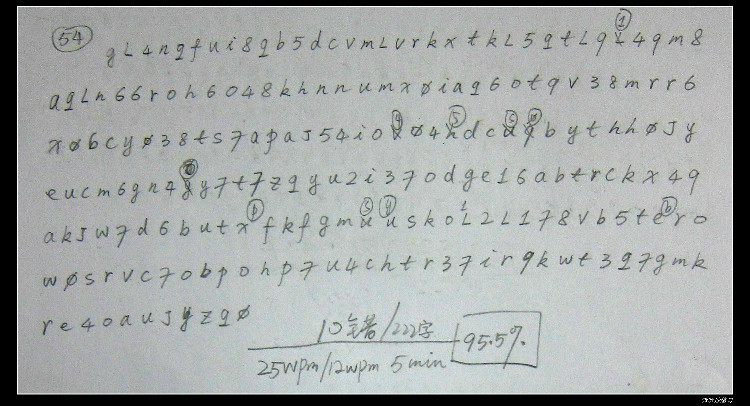 54
gL4nqfui8qb5dcvmLvrkxtkL5qtLqL4qm8
aqLn66roh6048khnnumxøiaq6otqv38mrr6
xøbcyø38ts7apaJ54io04hdcbythhøJy
eucm6gn4y7t7zqyu2i37odge16abtrckx49
akJw7d6butxfkfgmuuskoL2L178vb5tero
wøsrvc7obpohp7u4chtr37ir9kwt3q7gmk
re4oauJyzqø
10错/222字
25wpm/12wpm 5min 95.5%